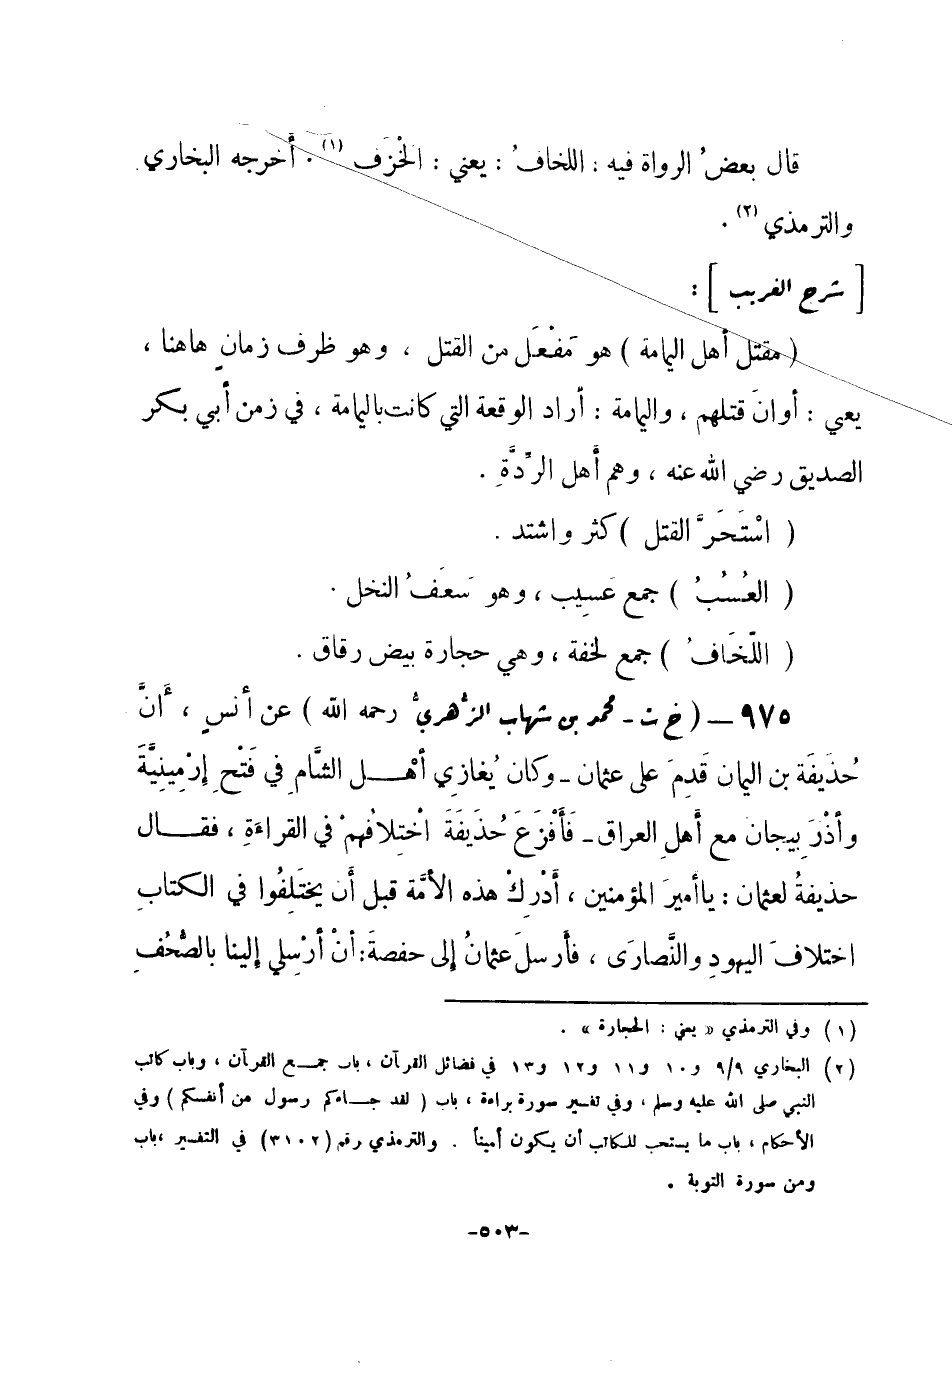 قال بعضُ الرواة فيه : اللخافُ : يعني : الخْزَف (١) . أَخرجه البخاري
والترمذي (٢) .
[ شرح الغريب ] :
( مقتل أهل اليمامة ) هو مَفْعَل من القتل ، وهو ظرف زمانٍ هاهنا ،
يعني : أوانَ قتلهم ، واليمامة : أراد الوقعة التي كانت باليمامة ، في زمن أبي بكر
الصديق رضي الله عنه ، وهم أَهل الرِّدَّةِ .
( اسْتَحَرَّ القتل ) كثر واشتد .
( العُسُبُ ) جمع عَسِيب ، وهو سَعَفُ النخل .
( اللِّخَافُ ) جمع لخفة ، وهي حجارة بيض رقاق .
٩٧٥ – ( خ ت - محمد بن شهاب الزُهريُّ رحمه الله ) عن أنسٍ ، أَنَّ
حُذَيفَة بن اليمان قَدِمَ على عثمان - وكان يُغازي أهْل الشَّامِ في فَتْحِ إرْمِينِيَّةَ
وأذْرَبِيجان مع أَهلِ العراق - فَأَفْزَعَ حُذَيفَةَ اخْتِلافُهمْ في القراءَةِ ، فقال
حذيفةُ لعثمان : ياأميرَ المؤمنين ، أَدْرِكْ هذه الأمَّة قبل أَن يختَلِفُوا في الكتابِ
اختلافَ اليهودِ والنَّصارَى ، فأَرسلَ عثمانُ إلى حفصةَ : أنْ أرْسِلي إلينا بالصُّحُفِ
(١) وفي الترمذي « يعني : الحجارة » .
(٢) البخاري ٩/٩ و١٠ و١١ و١٢ و١٣ في فضائل القرآن ، باب جمع القرآن ، وباب كاتب
النبي صلى الله عليه وسلم ، وفي تفسير سورة براءة ، باب ( لقد جاءكم رسول من أنفسكم ) وفي
الأحكام ، باب ما يستحب للكاتب أن يكون أميناً . والترمذي رقم (٣١٠٢) في التفسير ، باب
ومن سورة التوبة .
-٥٠٣-